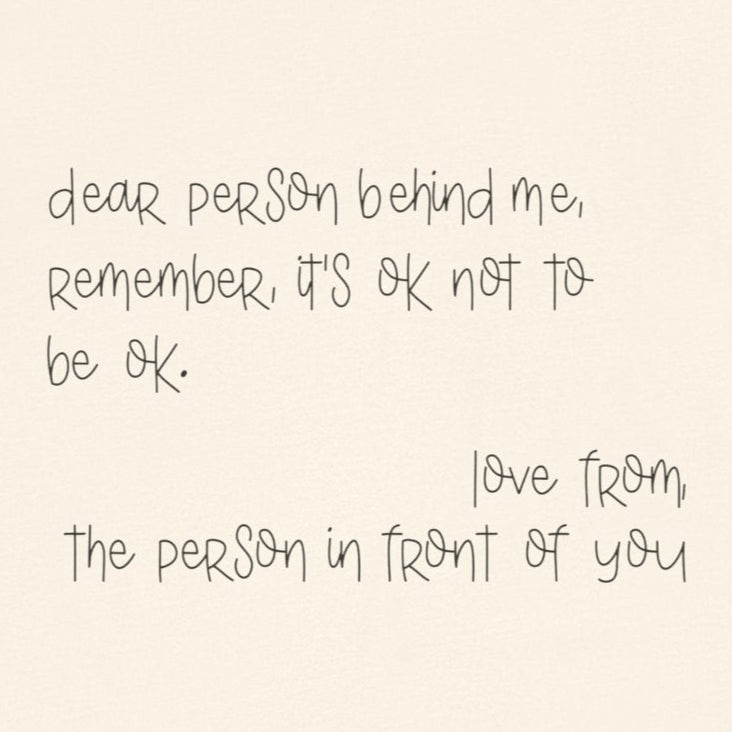 dear person behind me,
remember, it's ok not to
be ok.
love from,
the person in front of you